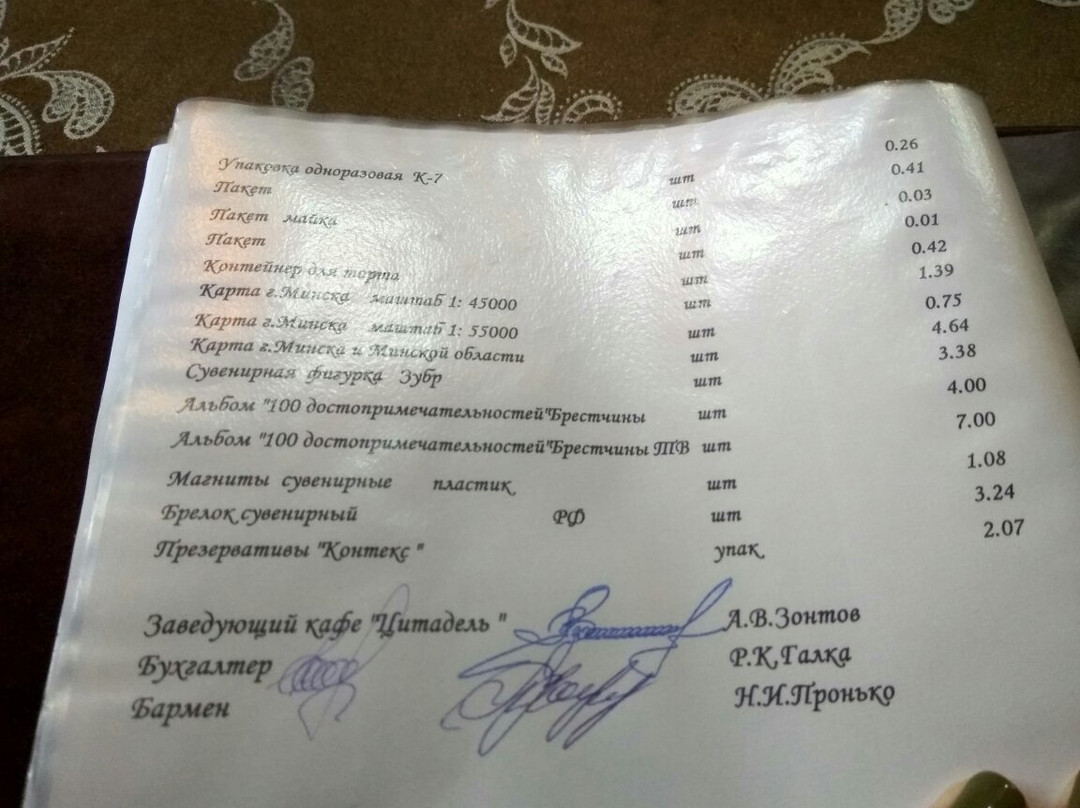 Упаковка одноразовая К-7 шт 0.26
Пакет шт 0.41
Пакет майка шт 0.03
Пакет шт 0.01
Контейнер для торта шт 0.42
Карта г.Минска маштаб 1: 45000 шт 1.39
Карта г.Минска маштаб 1: 55000 шт 0.75
Карта г.Минска и Минской области шт 4.64
Сувенирная фигурка Зубр шт 3.38
Альбом "100 достопримечательностей"Брестчины шт 4.00
Альбом "100 достопримечательностей"Брестчины ТВ шт 7.00
Магниты сувенирные пластик шт 1.08
Брелок сувенирный РФ шт 3.24
Презервативы "Контекс " упак 2.07
Заведующий кафе "Цитадель " А.В.Зонтов
Бухгалтер Р.К.Галка
Бармен Н.И.Пронько